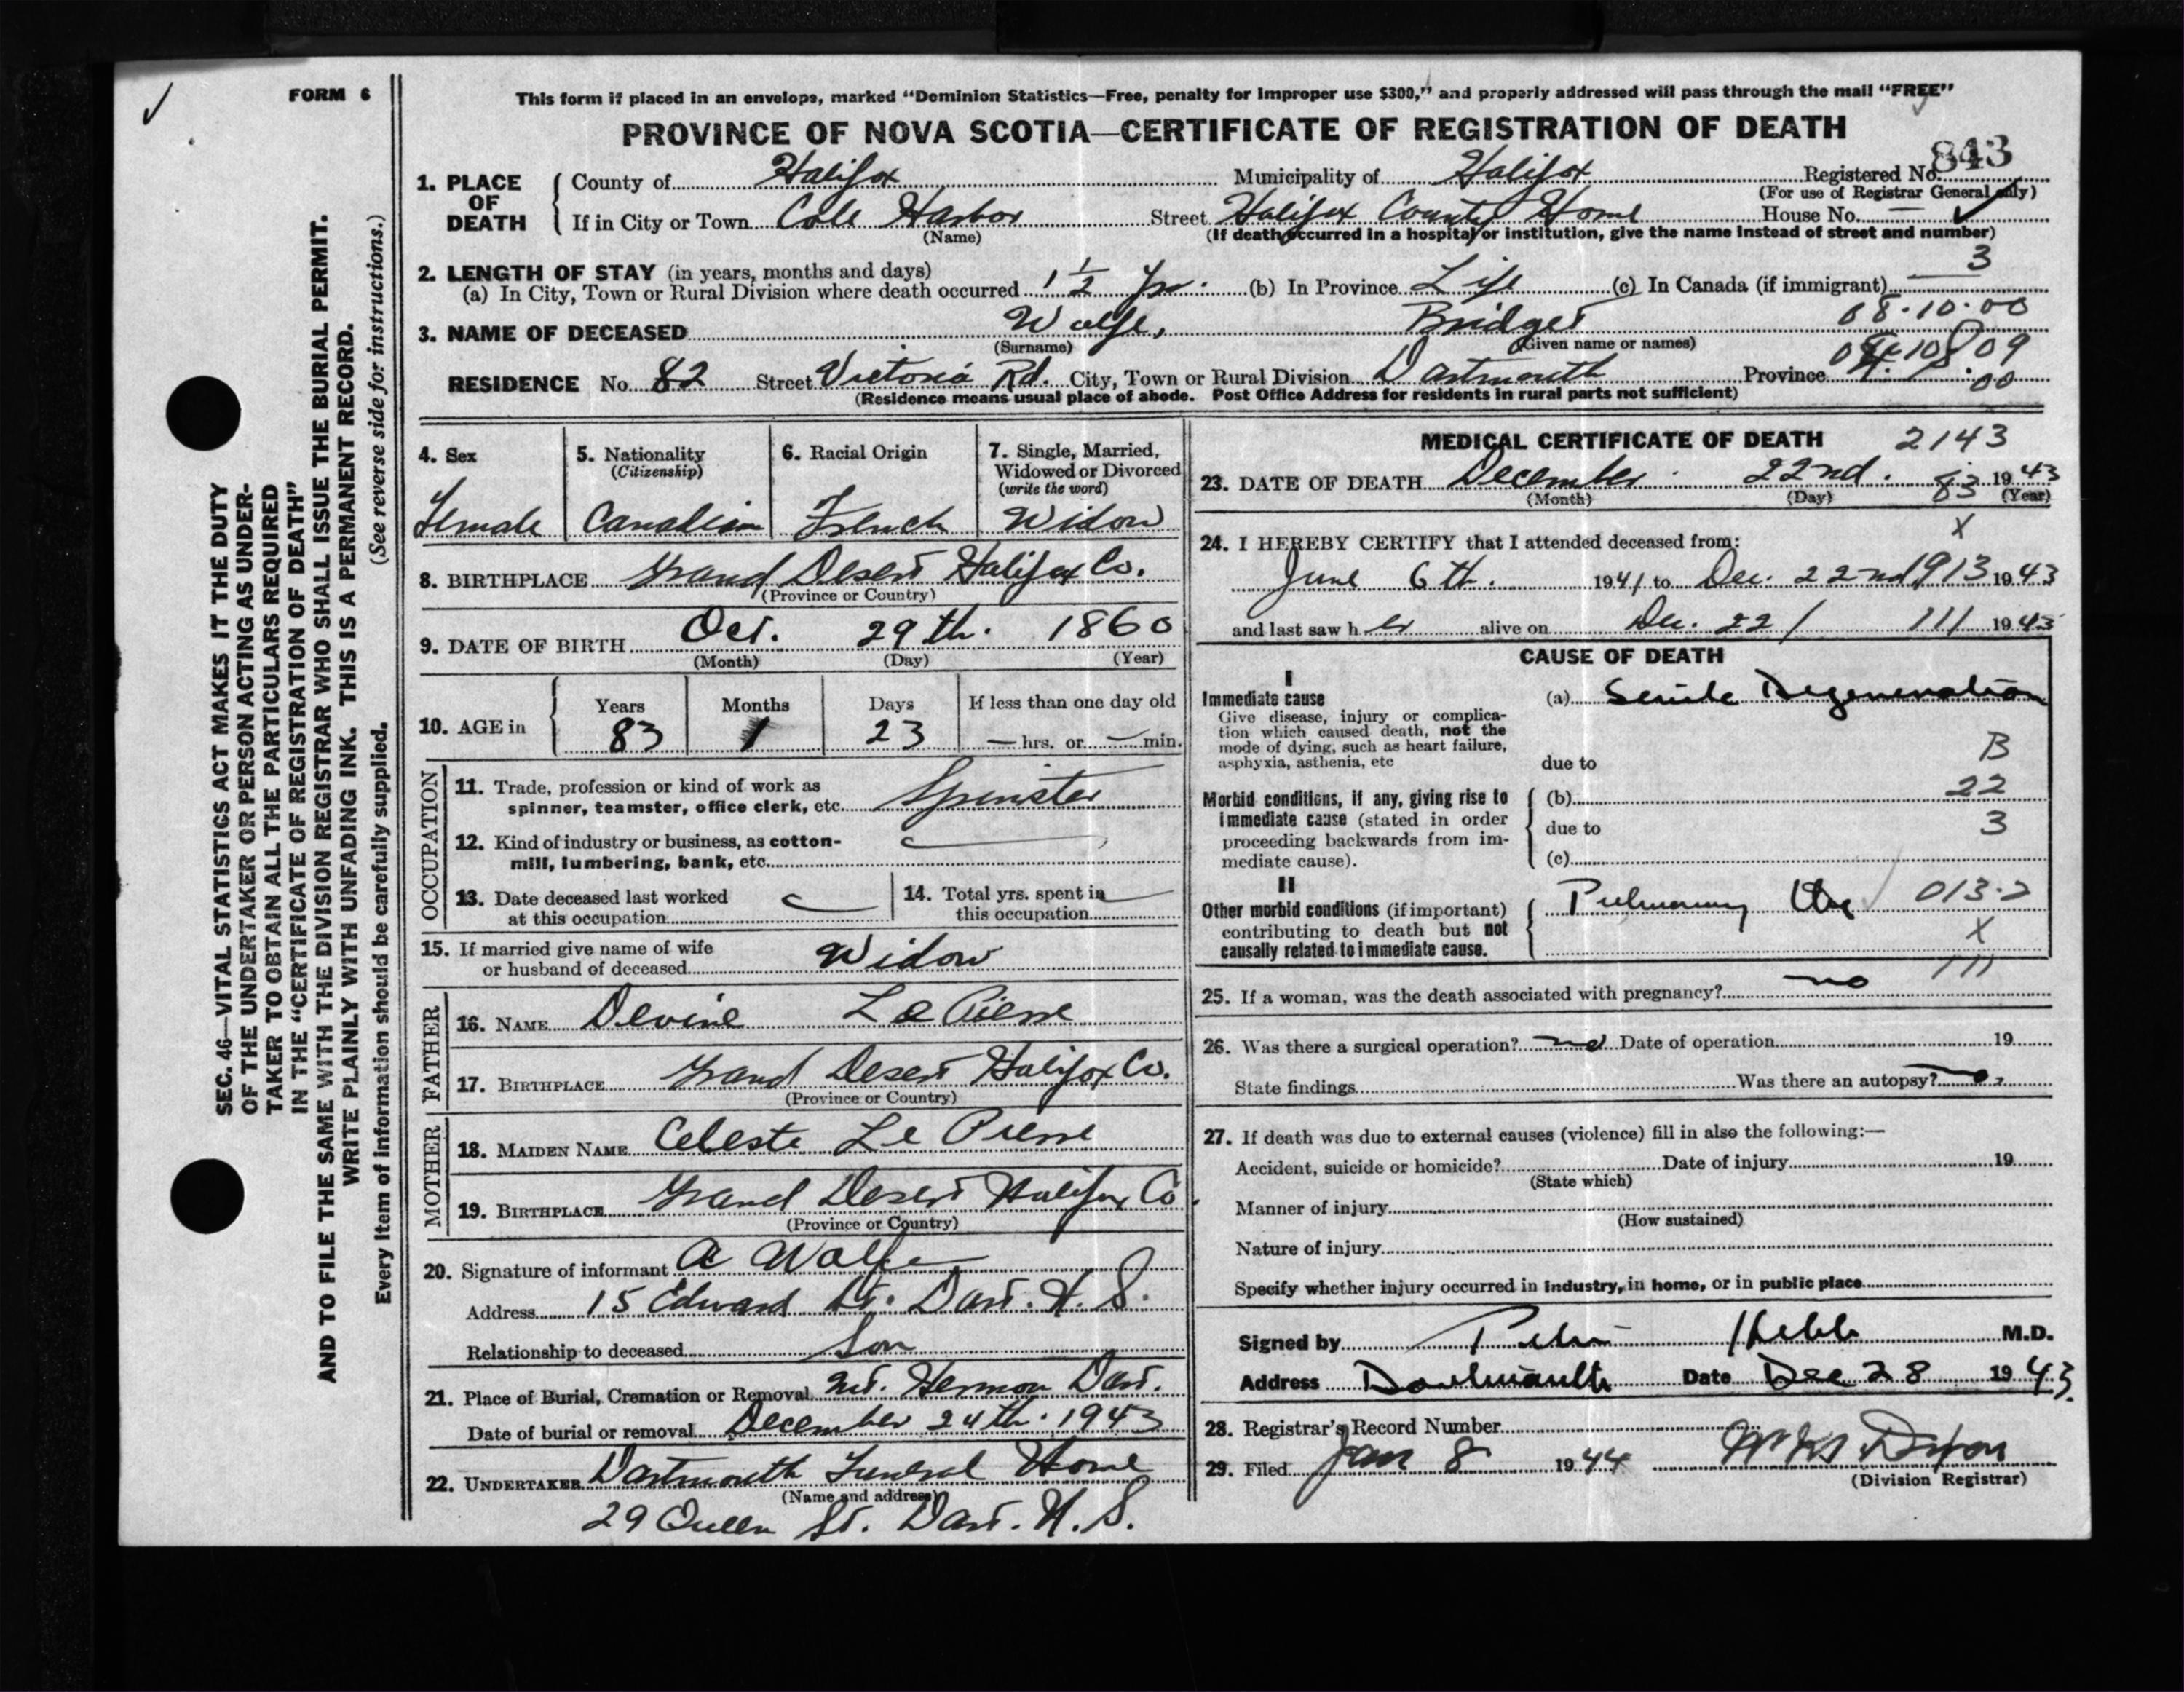 FORM 6
This form if placed in an envelope, marked "Dominion Statistics—Free, penalty for improper use $300," and properly addressed will pass through the mail "FREE"
PROVINCE OF NOVA SCOTIA—CERTIFICATE OF REGISTRATION OF DEATH
843
1. PLACE OF DEATH County of Halifax Municipality of Halifax Registered No.
(For use of Registrar General only)
If in City or Town Cole Harbor Street Halifax County Home House No. —
(Name) (If death occurred in a hospital or institution, give the name instead of street and number)
2. LENGTH OF STAY (in years, months and days) 3
(a) In City, Town or Rural Division where death occurred 1 1/2 Yrs. (b) In Province Life (c) In Canada (if immigrant)
08.10.00
3. NAME OF DECEASED Wolfe, Bridget
(Surname) (Given name or names)
RESIDENCE No. 82 Street Victoria Rd. City, Town or Rural Division Dartmouth Province
(Residence means usual place of abode. Post Office Address for residents in rural parts not sufficient)
4. Sex 5. Nationality (Citizenship) 6. Racial Origin 7. Single, Married, Widowed or Divorced (write the word)
Female Canadian French Widow
8. BIRTHPLACE Grand Desert Halifax Co.
(Province or Country)
9. DATE OF BIRTH Oct. 29th. 1860
(Month) (Day) (Year)
10. AGE in Years Months Days If less than one day old
83 1 23 — hrs. or — min.
OCCUPATION
11. Trade, profession or kind of work as
spinner, teamster, office clerk, etc. Spinster
12. Kind of industry or business, as cotton-
mill, lumbering, bank, etc.
13. Date deceased last worked
at this occupation
14. Total yrs. spent in
this occupation
15. If married give name of wife
or husband of deceased Widow
FATHER
16. NAME Devine La Pierre
17. BIRTHPLACE Grand Desert Halifax Co.
(Province or Country)
MOTHER
18. MAIDEN NAME Celeste Le Pierre
19. BIRTHPLACE Grand Desert Halifax Co.
(Province or Country)
20. Signature of informant A Wolfe
Address 15 Edward St. Dart. N. S.
Relationship to deceased Son
21. Place of Burial, Cremation or Removal Mt. Hermon Dart.
Date of burial or removal December 24th. 1943
22. UNDERTAKER Dartmouth Funeral Home
(Name and address)
29 Queen St. Dart. N. S.
MEDICAL CERTIFICATE OF DEATH 2143
23. DATE OF DEATH December 22nd. 83 1943
(Month) (Day) (Year)
X
24. I HEREBY CERTIFY that I attended deceased from:
June 6th. 1941 to Dec. 22nd 913 1943
and last saw her alive on Dec. 22/ 111 1943
CAUSE OF DEATH
I
Immediate cause (a) Senile Degeneration
Give disease, injury or complica-
tion which caused death, not the
mode of dying, such as heart failure,
asphyxia, asthenia, etc due to B
Morbid conditions, if any, giving rise to (b) 22
immediate cause (stated in order due to 3
proceeding backwards from im-
mediate cause). (c)
II
Other morbid conditions (if important) Pulmonary 013.2
contributing to death but not
causally related to immediate cause. X
111
25. If a woman, was the death associated with pregnancy? no
26. Was there a surgical operation? no Date of operation 19
State findings Was there an autopsy? no.
27. If death was due to external causes (violence) fill in also the following:—
Accident, suicide or homicide? Date of injury 19
(State which)
Manner of injury
(How sustained)
Nature of injury
Specify whether injury occurred in industry, in home, or in public place
Signed by Hebb M.D.
Address Dartmouth Date Dec 28 1943.
28. Registrar's Record Number
29. Filed Jan 8 1944 Dixon
(Division Registrar)
SEC. 46—VITAL STATISTICS ACT MAKES IT THE DUTY
OF THE UNDERTAKER OR PERSON ACTING AS UNDER-
TAKER TO OBTAIN ALL THE PARTICULARS REQUIRED
IN THE "CERTIFICATE OF REGISTRATION OF DEATH"
AND TO FILE THE SAME WITH THE DIVISION REGISTRAR WHO SHALL ISSUE THE BURIAL PERMIT.
WRITE PLAINLY WITH UNFADING INK. THIS IS A PERMANENT RECORD.
Every item of information should be carefully supplied. (See reverse side for instructions.)